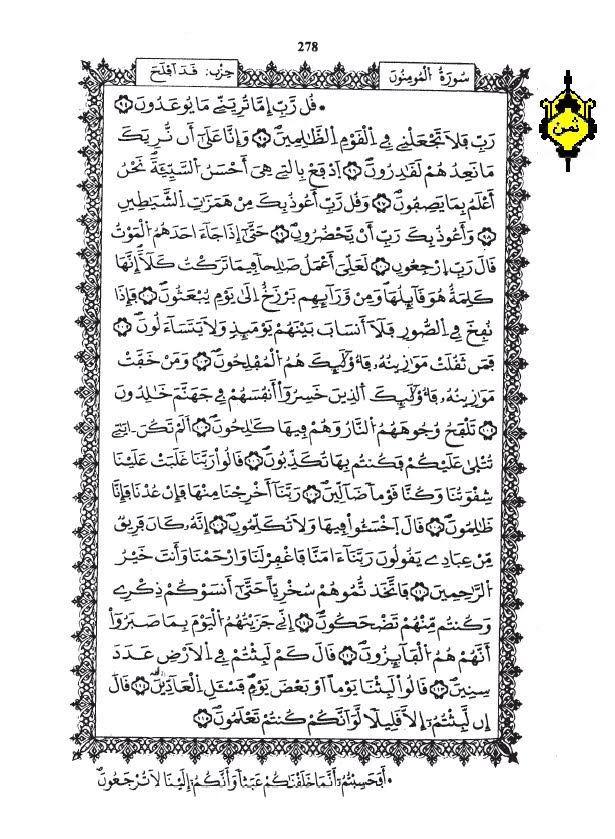 278
سُورَةُ اُلْمُومِنُونَ
حِزْب: قَدَ اَفْلَحَ
ثمن
• قُل رَّبِّ إِمَّا تُرِيَنِّے مَا يُوعَدُونَ ۝
رَبِّ فَلَا تَجْعَلْنِے فِے اِلْقَوْمِ اِلظَّٰلِمِينَ ۝ وَإِنَّا عَلَىٰٓ أَن نُّرِيَكَ
مَا نَعِدُهُمْ لَقَٰدِرُونَ ۝ اَدْفَعْ بِالتِے هِىَ أَحْسَنُ اُلسَّيِّئَةَ نَحْنُ
أَعْلَمُ بِمَا يَصِفُونَ ۝ وَقُل رَّبِّ أَعُوذُ بِكَ مِنْ هَمَزَٰتِ اِلشَّيَٰطِينِ
۝ وَأَعُوذُ بِكَ رَبِّ أَنْ يَّحْضُرُونِ ۝ حَتَّىٰٓ إِذَا جَآءَ احَدَهُمُ اُلْمَوْتُ
قَالَ رَبِّ اِرْجِعُونِ ۝ لَعَلِّىَ أَعْمَلُ صَٰلِحاً فِيمَا تَرَكْتُ كَلَّآ إِنَّهَا
كَلِمَةٌ هُوَ قَآئِلُهَا وَمِنْ وَّرَآئِهِم بَرْزَخٌ اِلَىٰ يَوْمِ يُبْعَثُونَ ۝ فَإِذَا
نُفِخَ فِے اِلصُّورِ فَلَآ أَنسَابَ بَيْنَهُمْ يَوْمَئِذٍ وَلَا يَتَسَآءَلُونَ ۝
فَمَن ثَقُلَتْ مَوَٰزِينُهُۥ فَأُوْلَٰٓئِكَ هُمُ اُلْمُفْلِحُونَ ۝ وَمَنْ خَفَّتْ
مَوَٰزِينُهُۥ فَأُوْلَٰٓئِكَ اَلذِينَ خَسِرُوٓاْ أَنفُسَهُمْ فِے جَهَنَّمَ خَٰلِدُونَ
۝ تَلْفَحُ وُجُوهَهُمُ اُلنَّارُ وَهُمْ فِيهَا كَٰلِحُونَ ۝ أَلَمْ تَكُنَ ـ ايَٰتِے
تُتْلَىٰ عَلَيْكُمْ فَكُنتُم بِهَا تُكَذِّبُونَ ۝ قَالُواْ رَبَّنَا غَلَبَتْ عَلَيْنَا
شِقْوَتُنَا وَكُنَّا قَوْماً ضَآلِّينَ ۝ رَبَّنَآ أَخْرِجْنَا مِنْهَا فَإِنْ عُدْنَا فَإِنَّا
ظَٰلِمُونَ ۝ قَالَ اَخْسَـُٔواْ فِيهَا وَلَا تُكَلِّمُونِ ۝ إِنَّهُۥ كَانَ فَرِيقٌ
مِّنْ عِبَادِے يَقُولُونَ رَبَّنَآ ءَامَنَّا فَاغْفِرْ لَنَا وَارْحَمْنَا وَأَنتَ خَيْرُ
اُلرَّٰحِمِينَ ۝ فَاتَّخَذتُّمُوهُمْ سُخْرِيّاً حَتَّىٰٓ أَنسَوْكُمْ ذِكْرِے
وَكُنتُم مِّنْهُمْ تَضْحَكُونَ ۝ إِنِّے جَزَيْتُهُمُ اُلْيَوْمَ بِمَا صَبَرُوٓاْ
أَنَّهُمْ هُمُ اُلْفَآئِزُونَ ۝ قَٰلَ كَمْ لَبِثْتُمْ فِے اِلْأَرْضِ عَدَدَ
سِنِينَ ۝ قَالُواْ لَبِثْنَا يَوْماً اَوْ بَعْضَ يَوْمٍ فَسْـَٔلِ اِلْعَآدِّينَ ۝ قَٰلَ
إِن لَّبِثْتُمُۥٓ إِلَّا قَلِيلًا لَّوَ اَنَّكُمْ كُنتُمْ تَعْلَمُونَ ۝
• أَفَحَسِبْتُمُۥٓ أَنَّمَا خَلَقْنَٰكُمْ عَبَثاً وَأَنَّكُمُۥٓ إِلَيْنَا لَا تُرْجَعُونَ